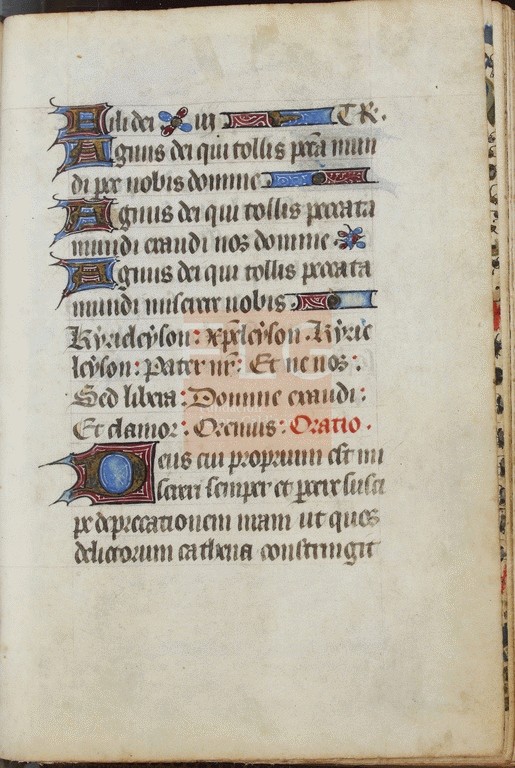 Fili dei iii TE R.
Agnus dei qui tollis pctā mun
di pce nobis domine
Agnus dei qui tollis peccata
mundi exaudi nos domine
Agnus dei qui tollis peccata
mundi miserere nobis
Kyrieleyson: xp̄eleyson. Kyrie
leyson: Pater nr̄. Et ne nos:
Sed libera: Domine exaudi:
Et clamor: Oremus: Oratio.
Deus cui proprium est mi
sereri semper et pcere susci
pe deprecationem nram ut quos
delictorum cathena constringit